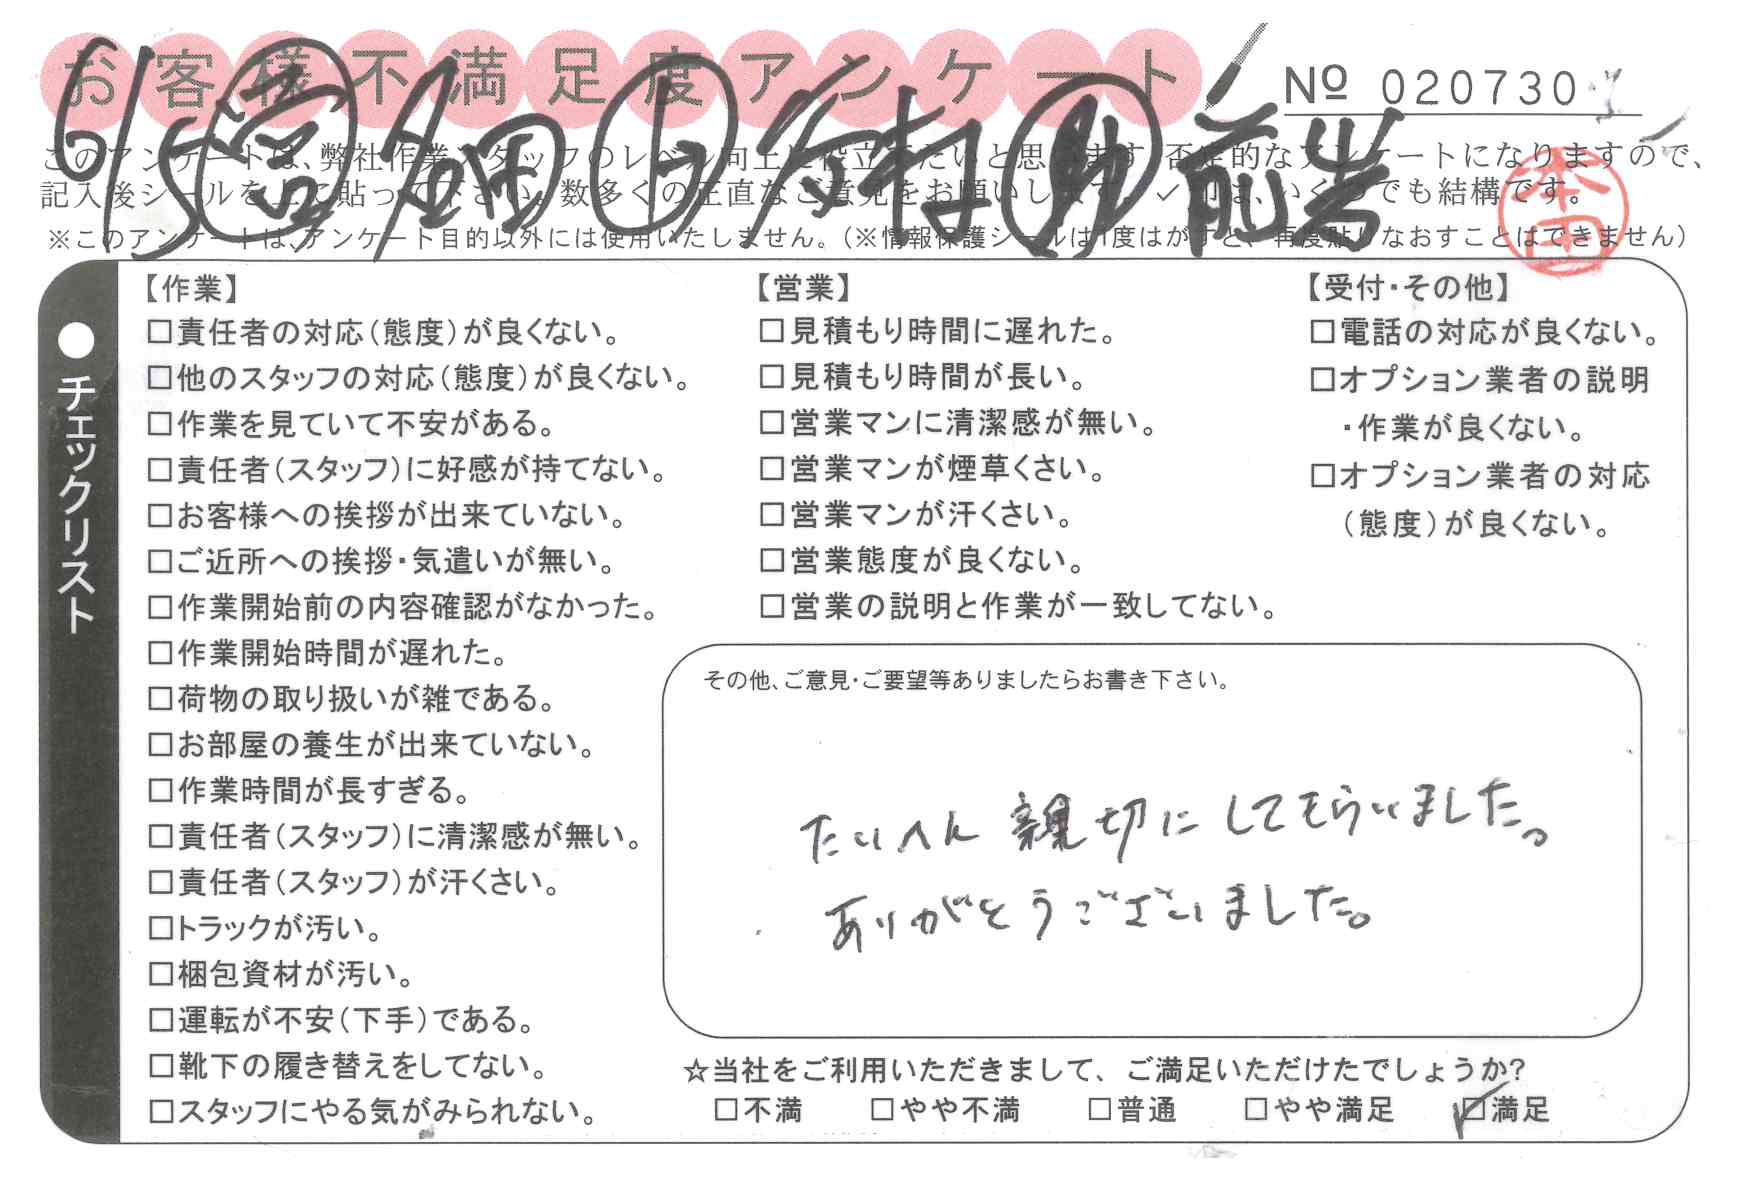 お客様不満足度アンケート
Nº 020730
6/5 営 生田 ト 谷村 助 前岩
このアンケートは、弊社作業スタッフのレベル向上に役立てたいと思います。否定的なアンケートになりますので、
記入後シールを上に貼って下さい。数多くの正直なご意見をお願いします。✓印は、いくつでも結構です。
※このアンケートは、アンケート目的以外には使用いたしません。（※情報保護シールは1度はがすと、再度貼りなおすことはできません）
本田
●チェックリスト
【作業】
□責任者の対応（態度）が良くない。
□他のスタッフの対応（態度）が良くない。
□作業を見ていて不安がある。
□責任者（スタッフ）に好感が持てない。
□お客様への挨拶が出来ていない。
□ご近所への挨拶・気遣いが無い。
□作業開始前の内容確認がなかった。
□作業開始時間が遅れた。
□荷物の取り扱いが雑である。
□お部屋の養生が出来ていない。
□作業時間が長すぎる。
□責任者（スタッフ）に清潔感が無い。
□責任者（スタッフ）が汗くさい。
□トラックが汚い。
□梱包資材が汚い。
□運転が不安（下手）である。
□靴下の履き替えをしてない。
□スタッフにやる気がみられない。
【営業】
□見積もり時間に遅れた。
□見積もり時間が長い。
□営業マンに清潔感が無い。
□営業マンが煙草くさい。
□営業マンが汗くさい。
□営業態度が良くない。
□営業の説明と作業が一致してない。
【受付・その他】
□電話の対応が良くない。
□オプション業者の説明
・作業が良くない。
□オプション業者の対応
（態度）が良くない。
その他、ご意見・ご要望等ありましたらお書き下さい。
たいへん親切にしてもらいました。
ありがとうございました。
☆当社をご利用いただきまして、ご満足いただけたでしょうか?
□不満 □やや不満 □普通 □やや満足 ☑満足